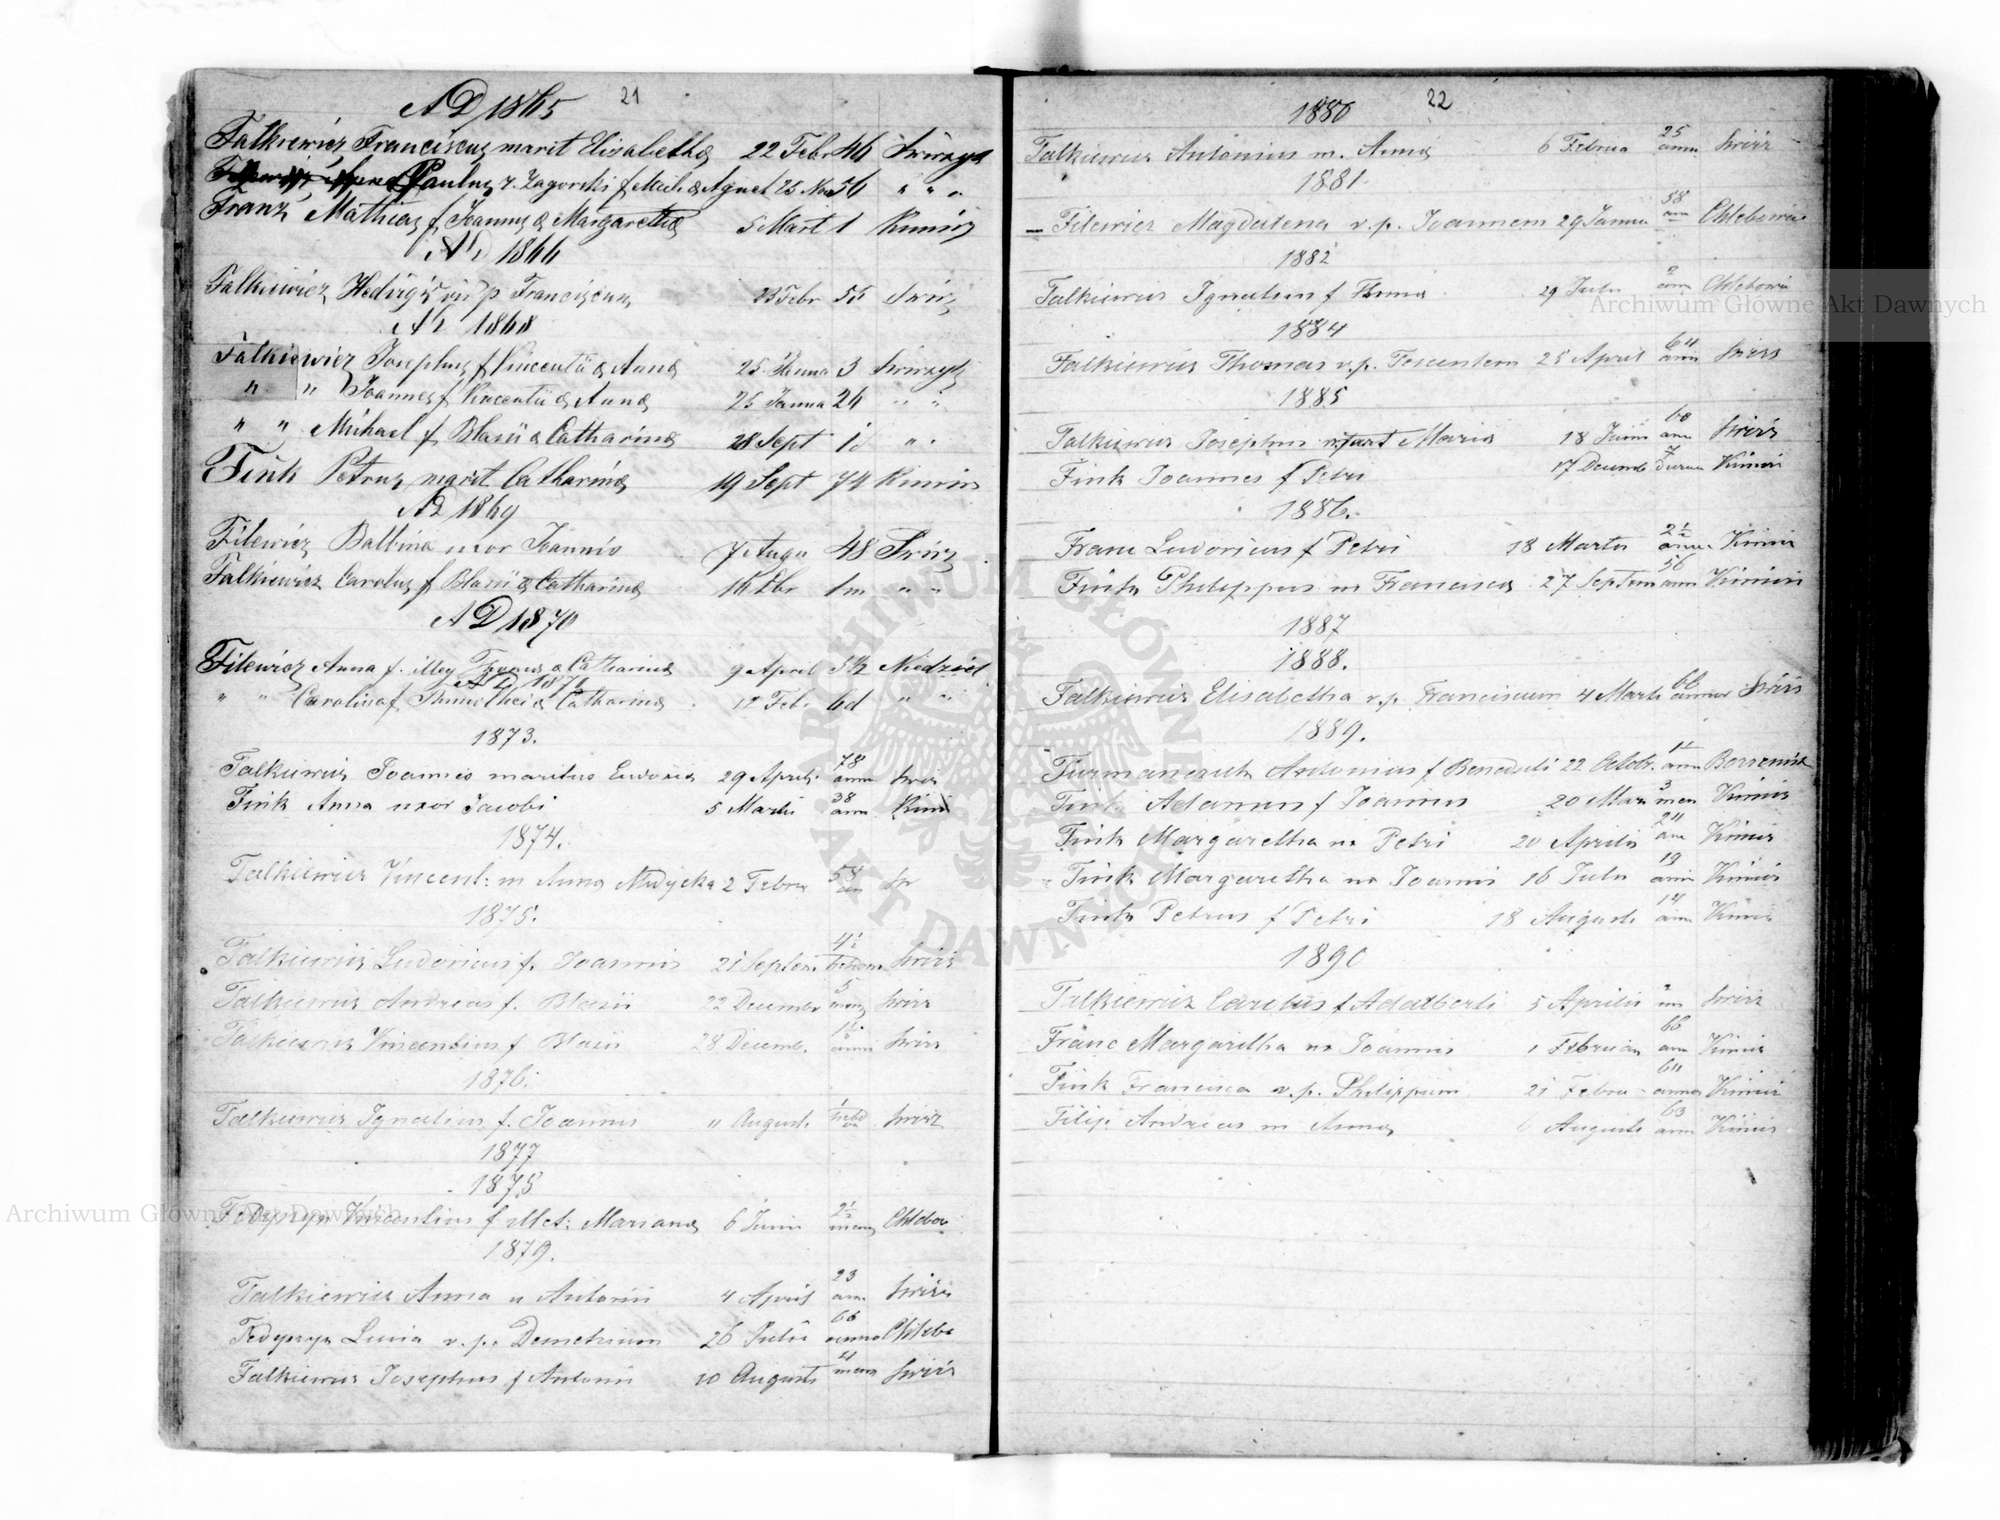 21
AD 1865
Falkiewicz Franciscus marit Elisabetha 22 Febr 46 Swirzyk
Paulus v. Zagorski f Mich & Agnet 25 Nov 56 " " "
Franz Mathias f Joannis & Margaretha 5 Mart 1 Kimirz
AD 1866
Falkiewicz Hedvigis p Franciscum 23 Febr 55 Swirz
AD 1868
Falkiewicz Josephus f Vincentii & Anna 25 Janua 3 Swirzyk
" " Joannes f Vincentii & Anna 25 Janua 24 " "
" " Michael f Blasii & Catharina 28 Sept " "
Fink Petrus marit Catharina 19 Sept 74 Kimirz
AD 1869
Filewicz Balbina uxor Joannis 7 Augu 48 Swirz
Falkiewicz Carolus f Blasii & Catharina 16 Xbr 1m " "
AD 1870
Filewicz Anna f. illeg & Catharina 9 April Niedziel
AD 1872
" " Carolina f & Catharina 12 Feb. 6d " "
1873.
Falkiewicz Joannes maritus Eudoxia 29 Aprilis 78 ann Swirz
Fink Anna uxor Jacobi 5 Martii 38 ann Kimi
1874.
Falkiewicz Vincent: m Anna Medycka 2 Febru 54 an Sw
1875.
Falkiewicz Ludovicus f. Joannis 21 Septem 4½ hebdom Swirz
Falkiewicz Andreas f. Blasii 22 Decembr 5 mens Swirz
Falkiewicz Vincentius f Blasii 28 Decemb. 1½ anni Swirz
1876.
Falkiewicz Ignatius f. Joannis 11 August. 1 hebd Swirz
1877
1878
Fedyszyn Vincentius f Met: Marianna 6 Junii 2½ mens Chlebow
1879.
Falkiewicz Anna u Antonii 4 April 23 ann Swirz
Fedyszyn Lucia v.p. Demetrium 26 Julii 66 anno Chlebo
Falkiewicz Josephus f Antonii 10 Augusti 4 mens Swirz
22
1880
Falkiewicz Antonius m. Anna 6 Februa 25 ann Swirz
1881.
Filewicz Magdalena v.p. Joannem 29 Janua 58 ann Chlebowic
1882
Falkiewicz Ignatius f Thoma 29 Julii 2 ann Chlebowic
1884
Falkiewicz Thomas v.p. 25 April 64 ann Swirz
1885
Falkiewicz Josephus Maria 18 Junii 60 ann Swirz
Fink Joannes f Petri 17 Decemb 7 Kimirz
1886.
Franc Ludovicus f Petri 18 Martii 2½ anni Kimirz
Fink Philippus m Francisca 27 Septem 56 ann Kimirz
1887
1888.
Falkiewicz Elisabetha v.p. Franciscum 4 Marti 66 annor Swirz
1889.
Furmanczuk Antonius f Benedicti 22 Octob. ann
Fink Adamus f Joannis 20 Mar 3 men Kimirz
Fink Margaretha ux Petri 20 Aprilis 24 ann Kimirz
Fink Margaretha ux Joannis 16 Julii 19 anni Kimirz
Fink Petrus f Petri 18 Augusti 14 ann Kimirz
1890
Falkiewicz Carolus f Adalberti 5 Aprilis 2 ann Swirz
Franc Margaritha ux Joannis 1 Februar 66 ann Kimirz
Fink Francisca v.p. Philippum 21 Februa 64 anno Kimirz
Filip Andreas m Anna 6 Augusti 63 ann Kimirz
Archiwum Główne Akt Dawnych
Archiwum Główne Akt Dawnych
ARCHIWUM GŁÓWNE AKT DAWNYCH